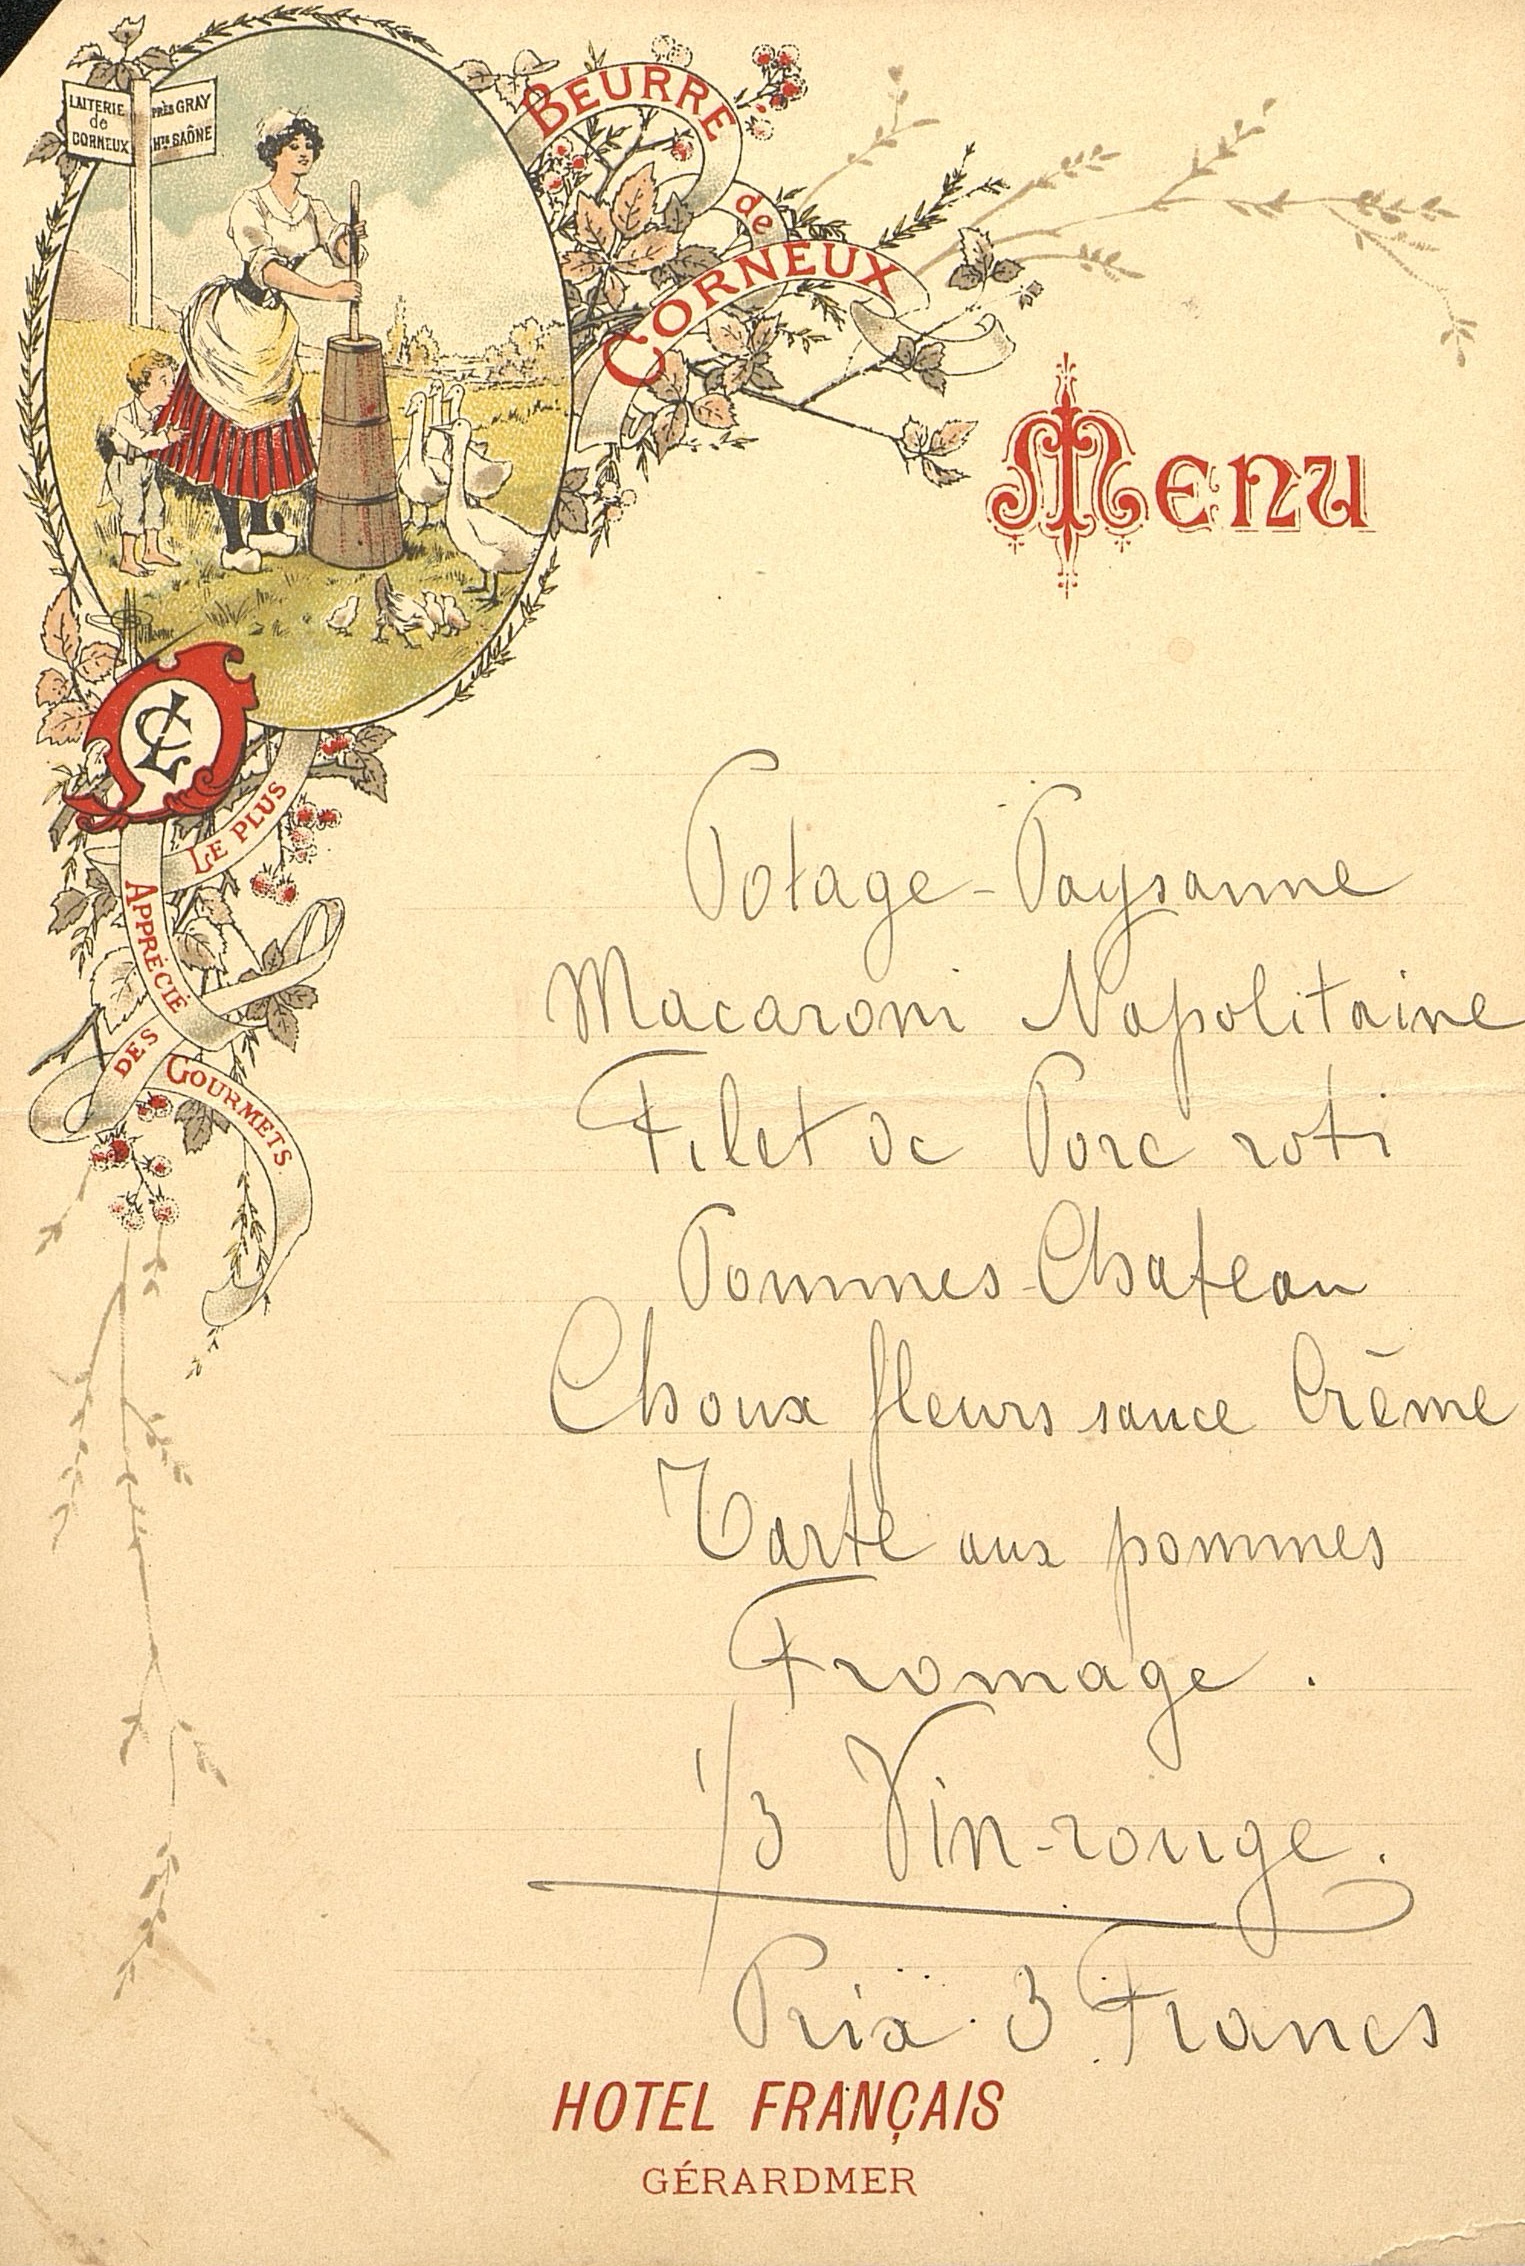 LAITERIE
de
CORNEUX
PRÈS GRAY
Hte SAÔNE
BEURRE
de
CORNEUX
MENU
LE PLUS
APPRÉCIÉ
DES
GOURMETS
Potage-Paysanne
Macaroni Napolitaine
Filet de Porc roti
Pommes-Chateau
Choux fleurs sauce Crème
Tarte aux pommes
Fromage.
1/3 Vin-rouge.
Prix. 3 Francs
HOTEL FRANÇAIS
GÉRARDMER